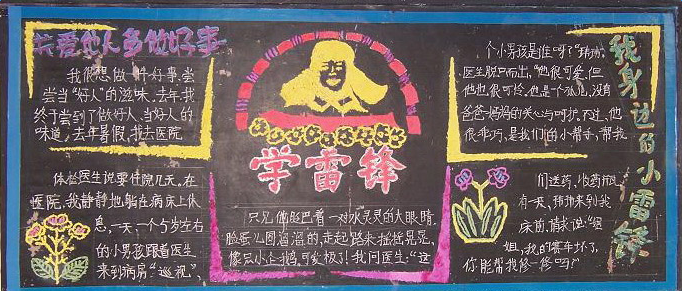 关爱他人多做好事
我很想做一件好事,尝
尝当“好人”的滋味。去年我
终于尝到了做好人、当好人的
味道。去年暑假,我去医院
体检医生说要住院几天。在
医院,我静静地躺在病床上休
息,一天,一个5岁左右
的小男孩跟着医生
来到病房“巡视”,
学雷锋
只见他眨巴着一对水灵灵的大眼睛
脸蛋儿圆溜溜的,走起路来摇摇晃晃,
像只小企鹅,可爱极了!我问医生:“这
我身边的小雷锋
个小男孩是谁呀?”
医生脱口而出,“他很可爱,但
他也很可怜,他是个孤儿,没有
爸爸妈妈的关心与呵护,不过,他
很乖巧,是我们的小帮手,帮我
们送药、收药瓶
有一天,琳琳来到我
床前,请求说:“姐
姐,我的赛车坏了,
你能帮我修一修吗?”